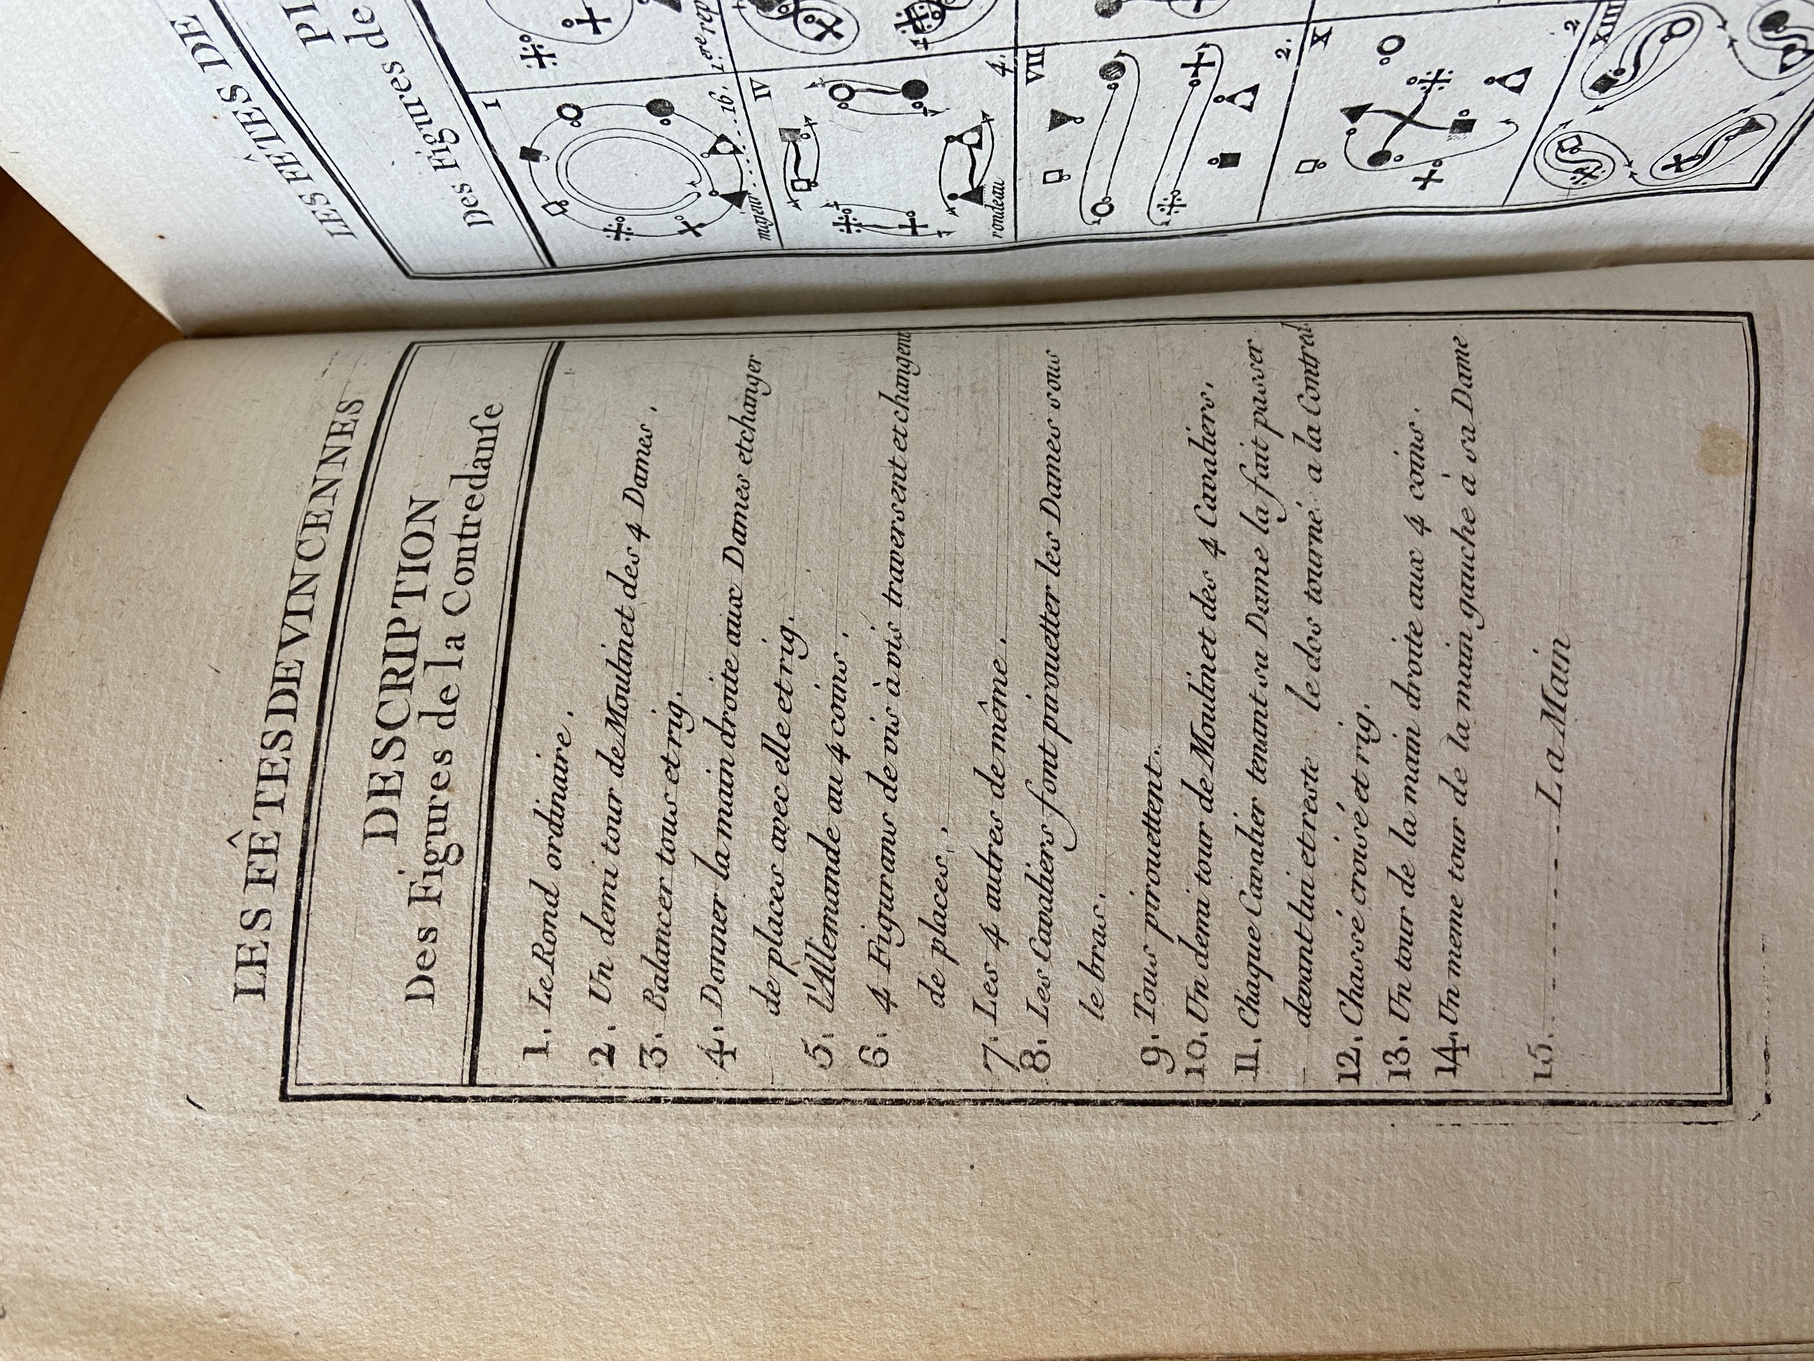 LES FÊTES DE VINCENNES
DESCRIPTION
Des Figures de la Contredanſe
1. Le Rond ordinaire.
2. Un demi tour de Moulinet des 4 Dames.
3. Balancer tous et rig.
4. Donner la main droite aux Dames et changer
de places avec elle et rig.
5. l'Allemande au 4 coins.
6. 4 Figurans de vis à vis traversent et changent
de places.
7. Les 4 autres de même.
8. Les Cavaliers font pirouetter les Dames sous
le bras.
9. Tous pirouettent.
10. Un demi tour de Moulinet des 4 Cavaliers.
11. Chaque Cavalier tenant sa Dame la fait passer
devant lui et reste le dos tourné a la Contred.
12. Chassé croisé et rig.
13. Un tour de la main droite aux 4 coins.
14. Un meme tour de la main gauche à sa Dame
15. ........ La Main
LES FÊTES DE
Des Figures de
I
1.ere rep
majeur.....16.
IV
rondeau
4.
VII
2.
X
2
XIII